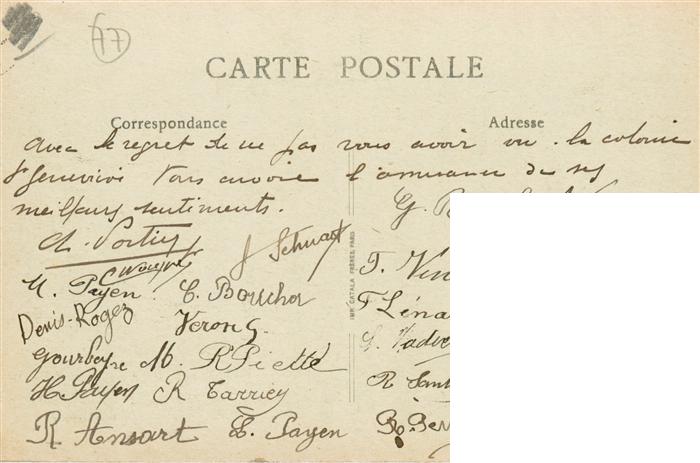 77
CARTE POSTALE
Correspondance
Adresse
avec le regret de ne pas vous avoir vu. la colonie
Ste Geneviève vous envoie l'assurance de ses
meilleurs sentiments.
Ch. Portier
J Schwart
M. Payen. C. Bouchor
Denis-Roger
Veron G.
Gourbeyre M. R Piette
H Payen R Tarriey
R. Ansart E. Payen
G.
F.
F Léna
G.
R
R.
IMP. CATALA FRÈRES, PARIS